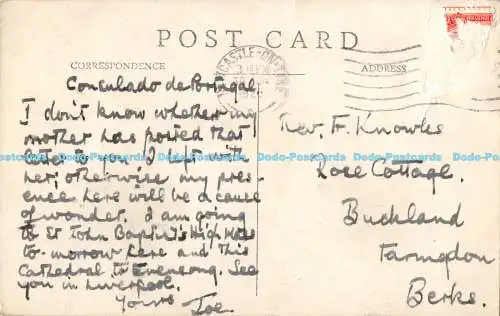 POST CARD
CORRESPONDENCE
ADDRESS
NEWCASTLE-ON-TYNE
Consulado de Portugal,
I don't know whether my
mother has posted that
letter to you I left with
her; otherwise my pres-
ence here will be a cause
of wonder. I am going
to St John Baptist's High Mass
to-morrow here and this
Cathedral to Evensong. See
you in Liverpool.
Yours Joe.
Rev. Fr. Knowles
Rose Cottage.
Buckland
Faringdon
Berks.
Dodo-Postcards Dodo-Postcards Dodo-Postcards Dodo-Postcards